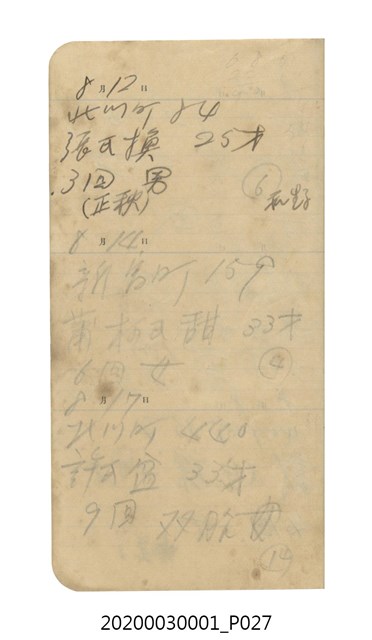 8月12日
北川町 84
張氏換 25才
3回 男
(正秋)
6
8月14日
新 町 159
葉 氏甜 33才
6回 女
4
8月17日
北川町 440
許氏 33才
9回 双胎 女
14
20200030001_P027